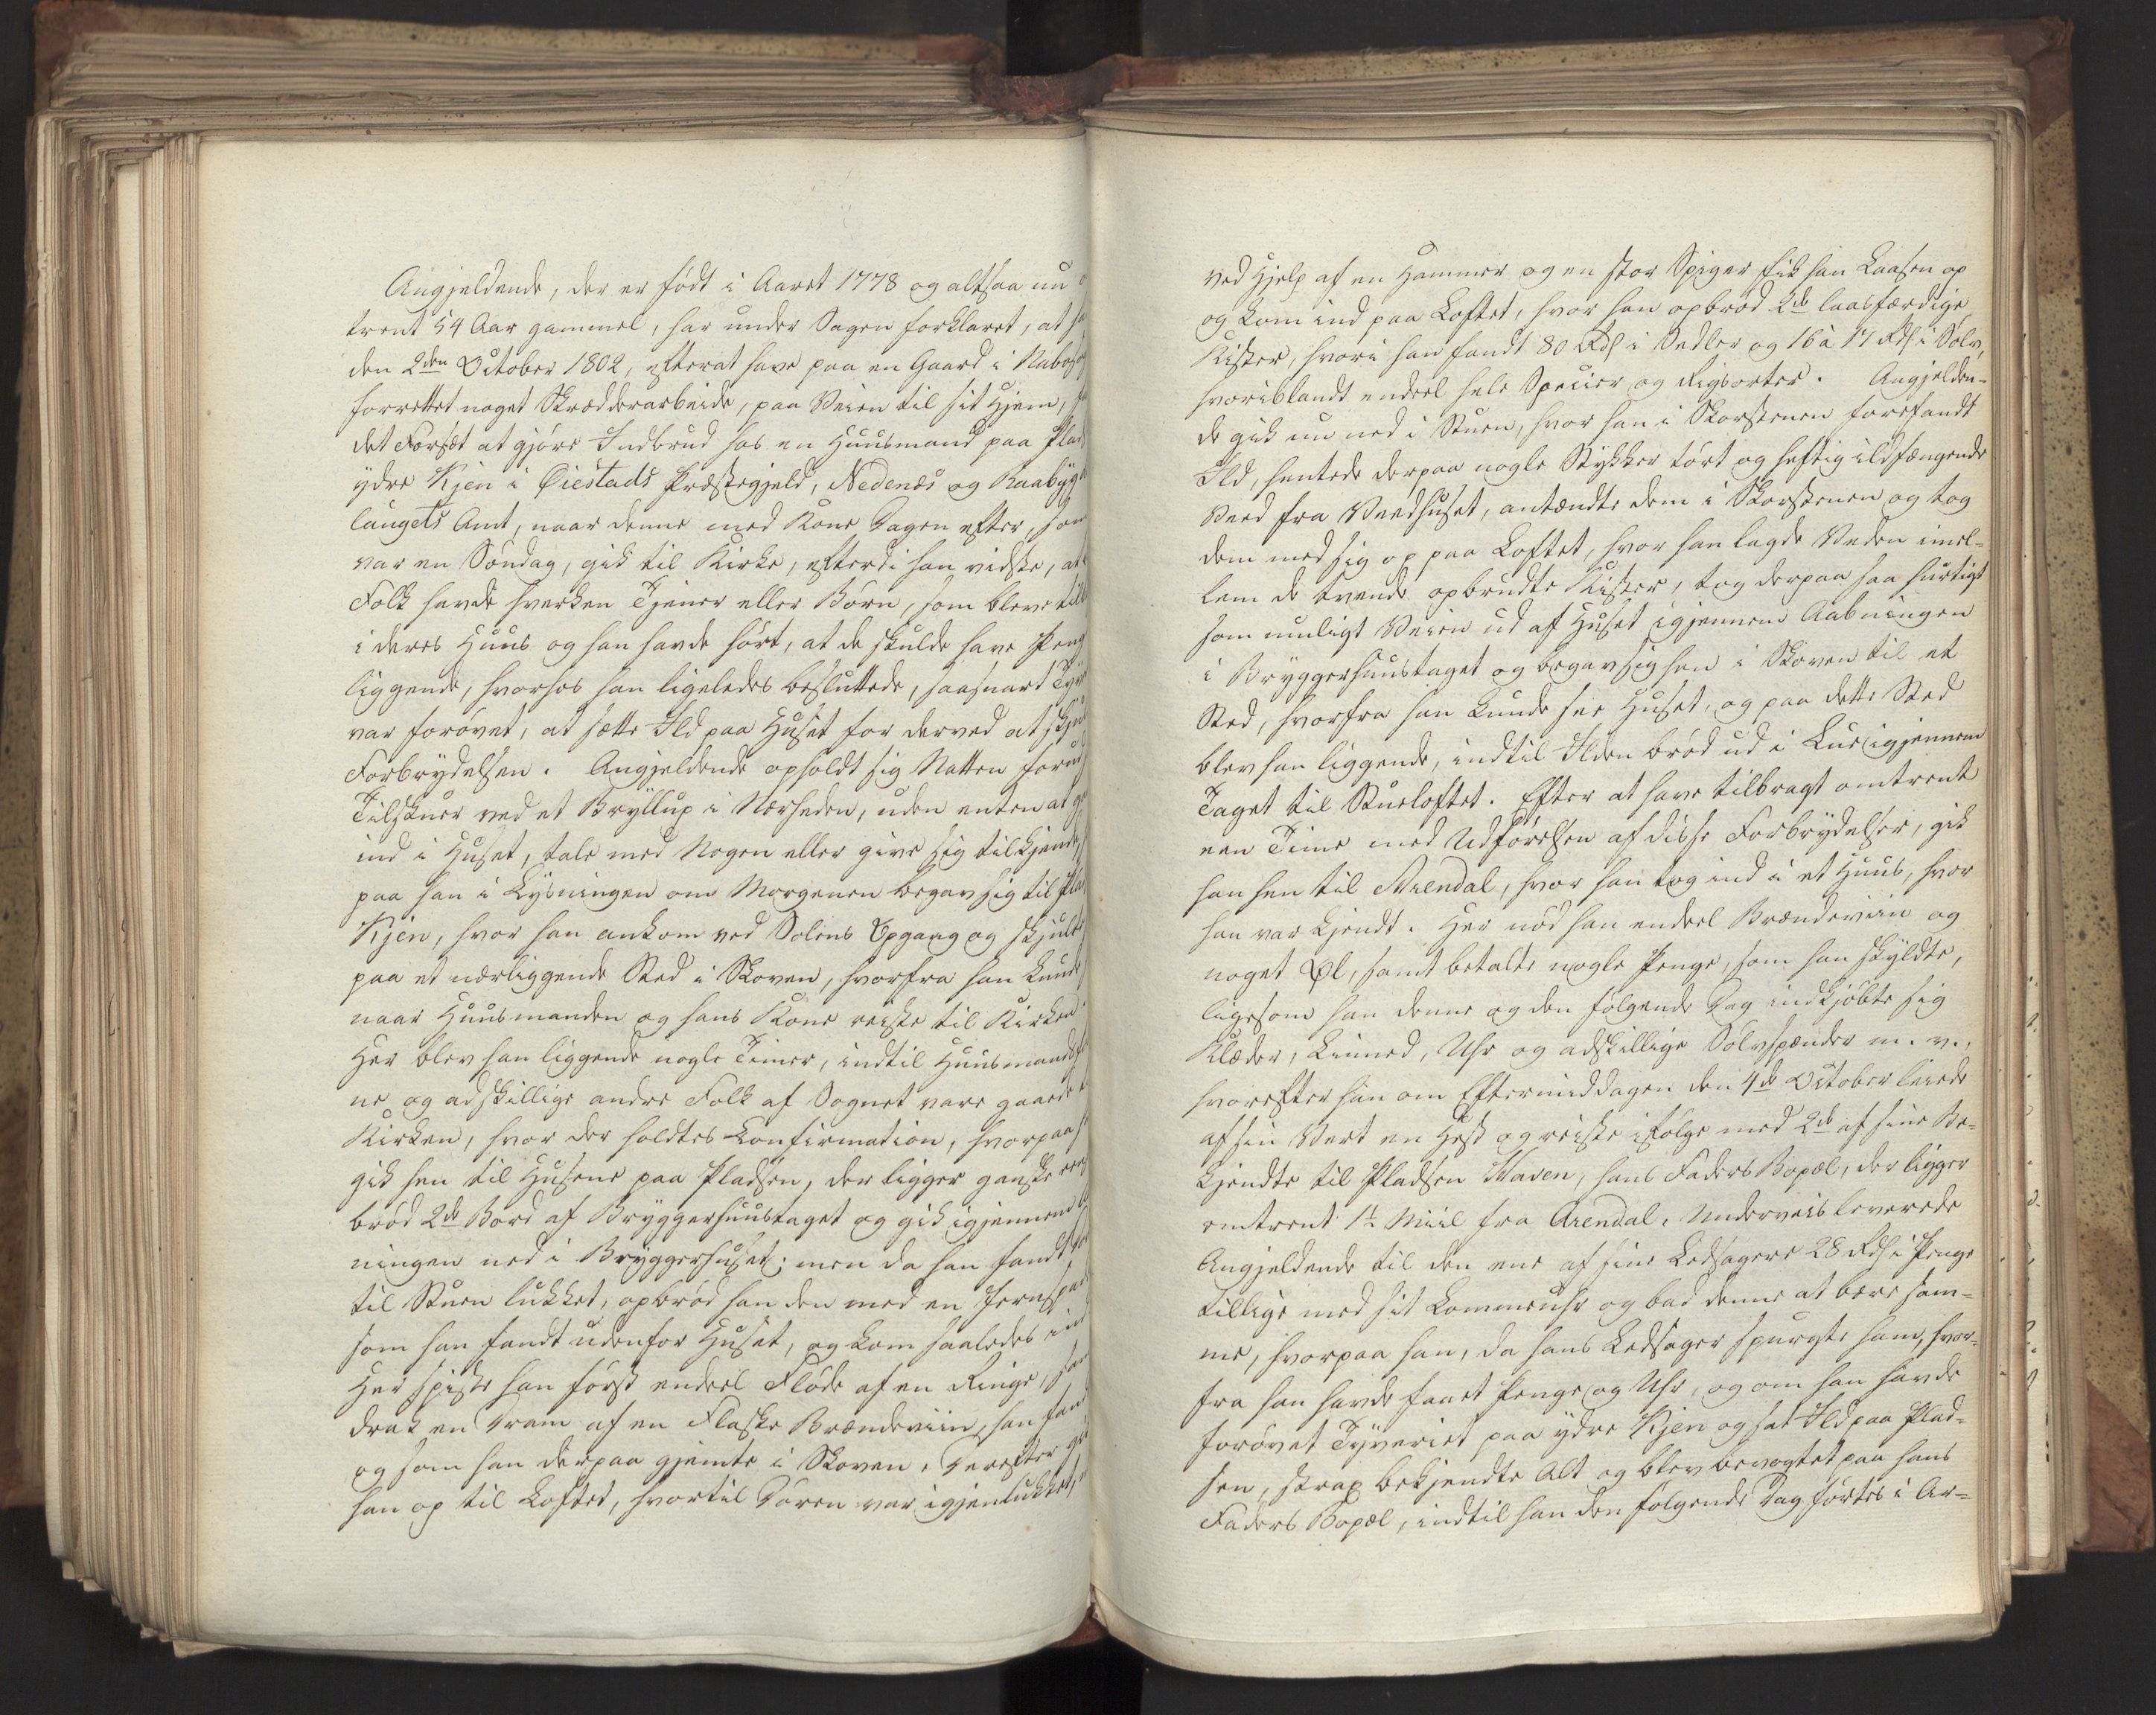 Angjeldende, der er født i Aaret 1778 og altsaa nu
trent 54 Aar gammel, har under Sagen forklaret, at
den 2den October 1802, efterat have paa en Gaard i
forrettet noget Skrædderarbeide, paa Veien til sit Hjem,
det Forsæt at gjøre Indbrud hos en Huusmand paa
ydre Kjen i Øiestads Præstegjeld, Nedenæs og Raabygde
laugets Amt, naar denne med Kone Dagen efter, som
var en Søndag, gik til Kirke, efterdi han vidste, at
Folk havde hverken Tjener eller Børn, som bleve
i deres Huus og han havde hørt, at de skulde have
liggende, hvorhos han ligeledes besluttede, saasnart
var forøvet, at sætte Ild paa Huset for derved at
Forbrydelsen. Angjeldende opholdt sig Natten
Tilskuer ved et Bryllup i Nærheden, uden enten at
ind i Huset, tale med Nogen eller give sig tilkjende,
paa han i Lysningen om Morgenen begav sig til
Kjen, hvor han ankom ved Solens Opgang og
paa et nærliggende Sted i Skoven, hvorfra han kunde
naar Huusmanden og hans Kone reiste til Kirken
Her blev han liggende nogle Timer, indtil
ne og adskillige andre Folk af Sognet vare gaaede
Kirken, hvor der holdtes Confirmation, hvorpaa
gik hen til Husene paa Pladsen, der ligger ganske
brød 2de Bord af Bryggerhuustaget og gik igjennem
ningen ned i Bryggerhuset; men da han fandt
til Stuen lukket, opbrød han den med en
som han fandt udenfor Huset, og kom saaledes ind
Her spiste han først endeel Fløde af en Ringe,
drak en Dram af en Flaske Brændeviin, han
og som han derpaa gjemte i Skoven. Derefter
han op til Loftet, hvortil Døren var igjenlukket,
ved Hjelp af en Hammer og en stor Spiger fik han Laasen op
og kom ind paa Loftet, hvor han opbrød 2de laasfærdige
Kister, hvori han fandt 80 Rdl i Sedler og 16 à 17 Rdl i Sølv,
hvoriblandt endeel hele Specier og Rigsorter. Angjelden-
de gik nu ned i Stuen, hvor han i Skorstenen forefandt
Ild, hentede derpaa nogle Stykker tørt og heftig ildfængende
Veed fra Veedhuset, antændte dem i Skorstenen og tog
dem med sig op paa Loftet, hvor han lagde Veden imel-
lem de tvende opbrudte Kister, tog derpaa saa hurtigt
som muligt Veien ud af Huset igjennem Aabningen
i Bryggerhuustaget og begav sig hen i Skoven til et
Sted, hvorfra han kunde see Huset, og paa dette Sted
blev han liggende, indtil Ilden brød ud i Lue igjennem
Taget til Stueloftet. Efter at have tilbragt omtrent
een Time med Udførelsen af disse Forbrydelser, gik
han hen til Arendal, hvor han tog ind i et Huus, hvor
han var kjendt. Her nød han endeel Brændeviin og
noget Øl, samt betalte nogle Penge, som han skyldte,
ligesom han denne og den følgende Dag indkjøbte sig
Klæder, Linned, Uhr og adskillige Sølvspænder m. v.,
hvorefter han om Eftermiddagen den 4de October leiede
af sin Vert en Hest og reiste i følge med 2de af sine Be-
kjendte til Pladsen Staven, hans Faders Bopæl, der ligger
omtrent 1½ Miil fra Arendal. Underveis leverede
Angjeldende til den ene af sine Ledsagere 28 Rdl i Penge
tillige med sit Lommeuhr og bad denne at bære sam-
me, hvorpaa han, da hans Ledsager spurgte ham, hvor-
fra han havde faaet Penge og Uhr, og om han havde
forøvet Tyveriet paa ydre Kjen og sat Ild paa Plad-
sen, strax bekjendte Alt og blev bevogtet paa hans
Faders Bopæl, indtil han den følgende Dag førtes i Ar-